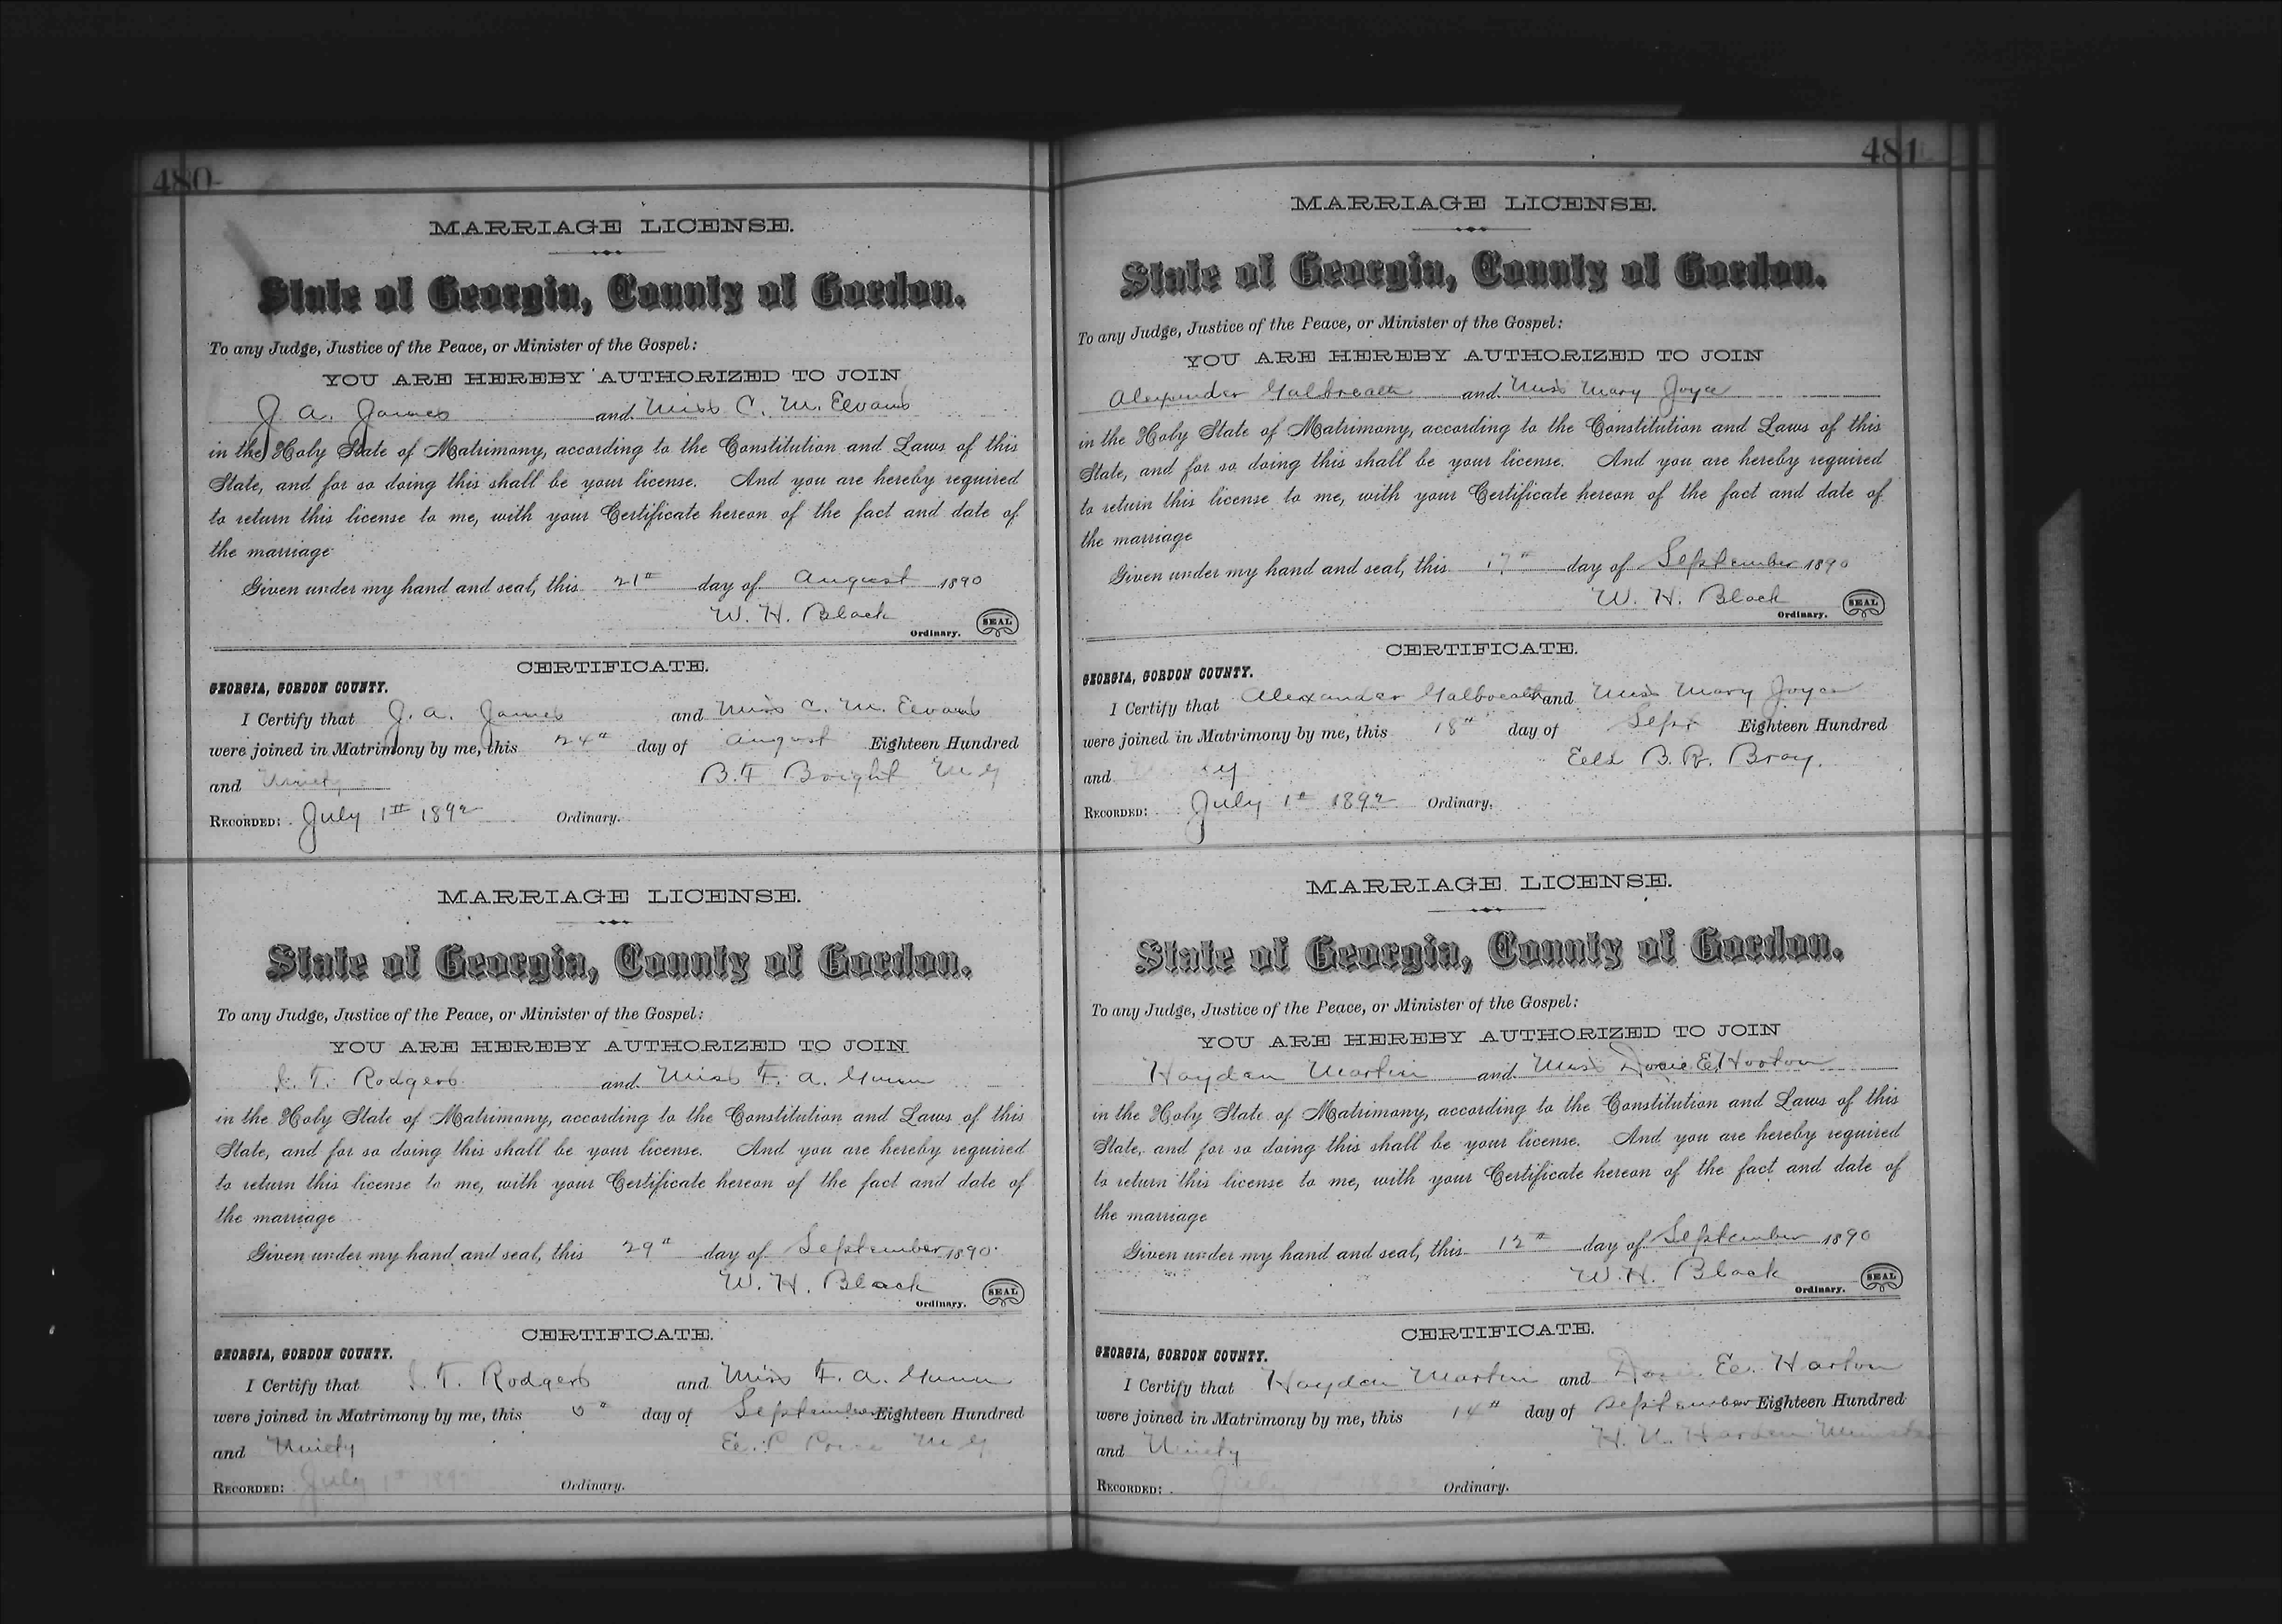 480
MARRIAGE LICENSE.
State of Georgia, County of Gordon.
To any Judge, Justice of the Peace, or Minister of the Gospel:
YOU ARE HEREBY AUTHORIZED TO JOIN
J. A. James and Miss C. M. Eevans
in the Holy State of Matrimony, according to the Constitution and Laws of this
State, and for so doing this shall be your license. And you are hereby required
to return this license to me, with your Certificate hereon of the fact and date of
the marriage
Given under my hand and seal, this 21st day of August 1890
W. H. Black
Ordinary. SEAL
CERTIFICATE.
GEORGIA, GORDON COUNTY.
I Certify that J. A. James and Miss C. M. Eevans
were joined in Matrimony by me, this 24th day of August Eighteen Hundred
and Ninety B. F. Bright M G
RECORDED: July 1st 1892 Ordinary.
MARRIAGE LICENSE.
State of Georgia, County of Gordon.
To any Judge, Justice of the Peace, or Minister of the Gospel:
YOU ARE HEREBY AUTHORIZED TO JOIN
T. Rodgers and Miss F. A. Gunn
in the Holy State of Matrimony, according to the Constitution and Laws of this
State, and for so doing this shall be your license. And you are hereby required
to return this license to me, with your Certificate hereon of the fact and date of
the marriage
Given under my hand and seal, this 29th day of September 1890
W. H. Black
Ordinary. SEAL
CERTIFICATE.
GEORGIA, GORDON COUNTY.
I Certify that T. Rodgers and Miss F. A. Gunn
were joined in Matrimony by me, this day of September Eighteen Hundred
and Ninety M G
RECORDED: July 1st 189 Ordinary.
481
MARRIAGE LICENSE.
State of Georgia, County of Gordon.
To any Judge, Justice of the Peace, or Minister of the Gospel:
YOU ARE HEREBY AUTHORIZED TO JOIN
Alexander Galbreath and Miss Mary Joyce
in the Holy State of Matrimony, according to the Constitution and Laws of this
State, and for so doing this shall be your license. And you are hereby required
to return this license to me, with your Certificate hereon of the fact and date of
the marriage
Given under my hand and seal, this 17th day of September 1890
W. H. Black
Ordinary. SEAL
CERTIFICATE.
GEORGIA, GORDON COUNTY.
I Certify that Alexander Galbreath and Miss Mary Joyce
were joined in Matrimony by me, this 18th day of Sept Eighteen Hundred
and Eld B. R. Bray.
RECORDED: July 1st 1892 Ordinary.
MARRIAGE LICENSE.
State of Georgia, County of Gordon.
To any Judge, Justice of the Peace, or Minister of the Gospel:
YOU ARE HEREBY AUTHORIZED TO JOIN
Hayden Martin and Miss Docie E. Horton
in the Holy State of Matrimony, according to the Constitution and Laws of this
State, and for so doing this shall be your license. And you are hereby required
to return this license to me, with your Certificate hereon of the fact and date of
the marriage
Given under my hand and seal, this 12th day of September 1890
W. H. Black
Ordinary. SEAL
CERTIFICATE.
GEORGIA, GORDON COUNTY.
I Certify that Hayden Martin and E. Harton
were joined in Matrimony by me, this 14th day of September Eighteen Hundred
and Ninety H. Harden Minister
RECORDED: July Ordinary.